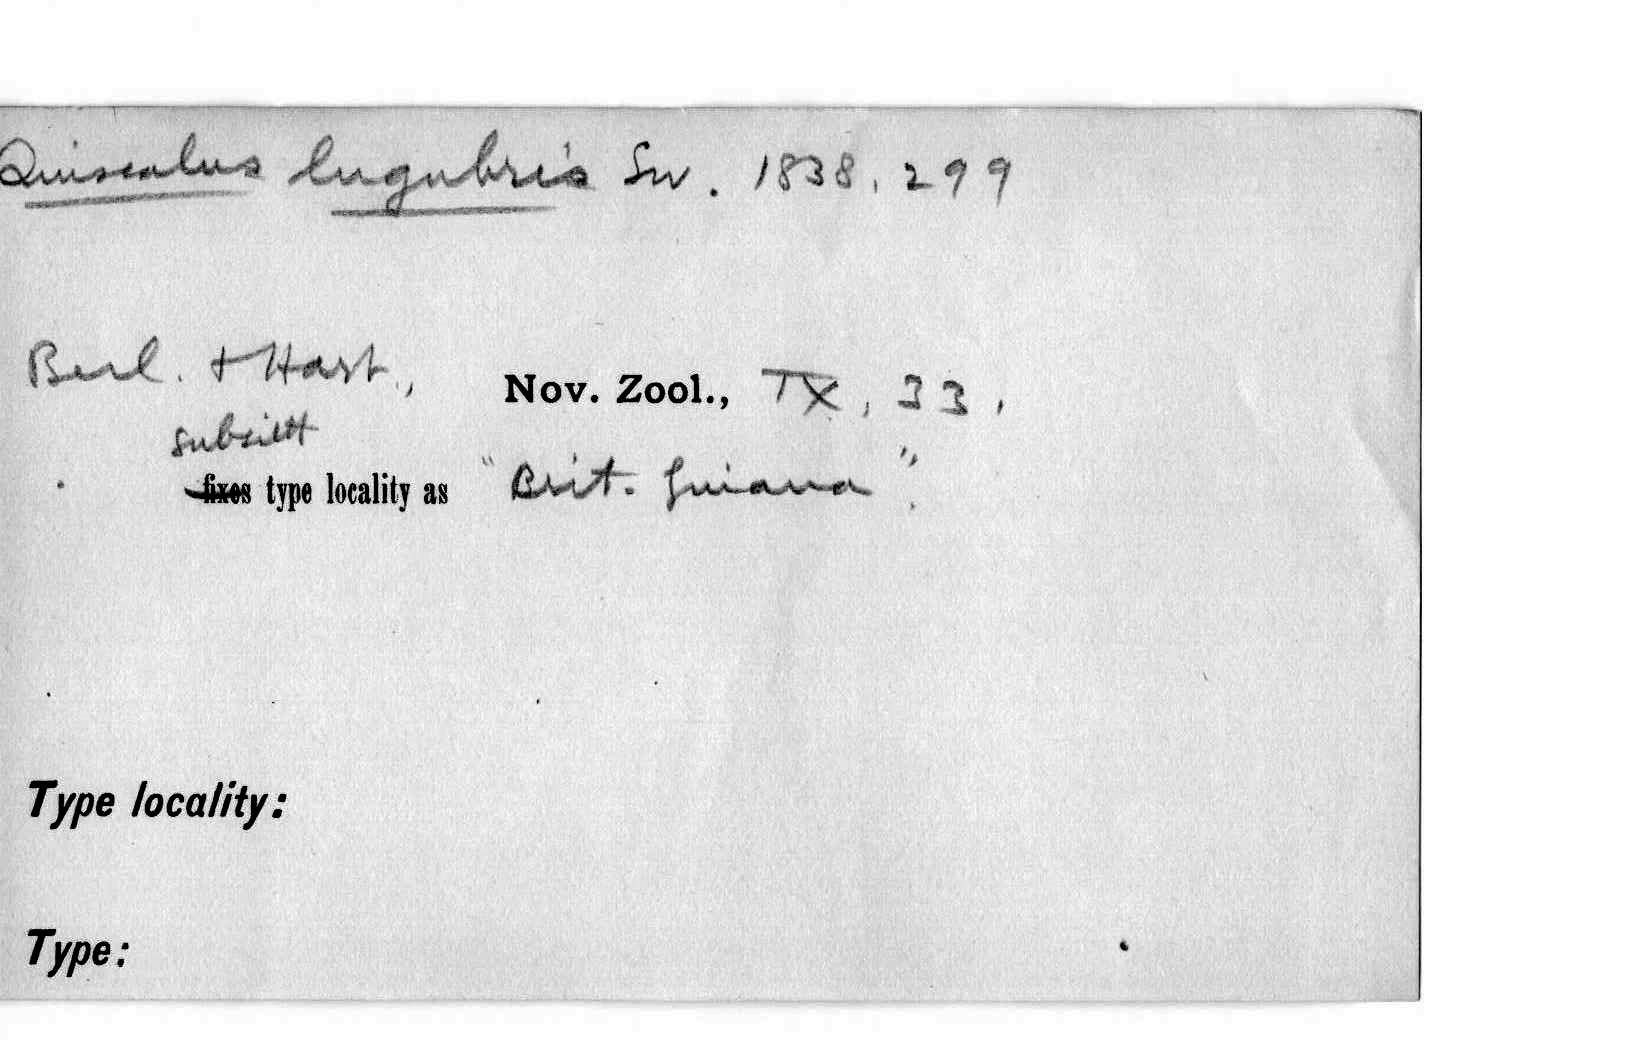 Quiscalus lugubris Sw. 1838, 299
Berl. + Hart., Nov. Zool., IX, 33,
fixes type locality as "Brit. Guiana".
Type locality:
Type: